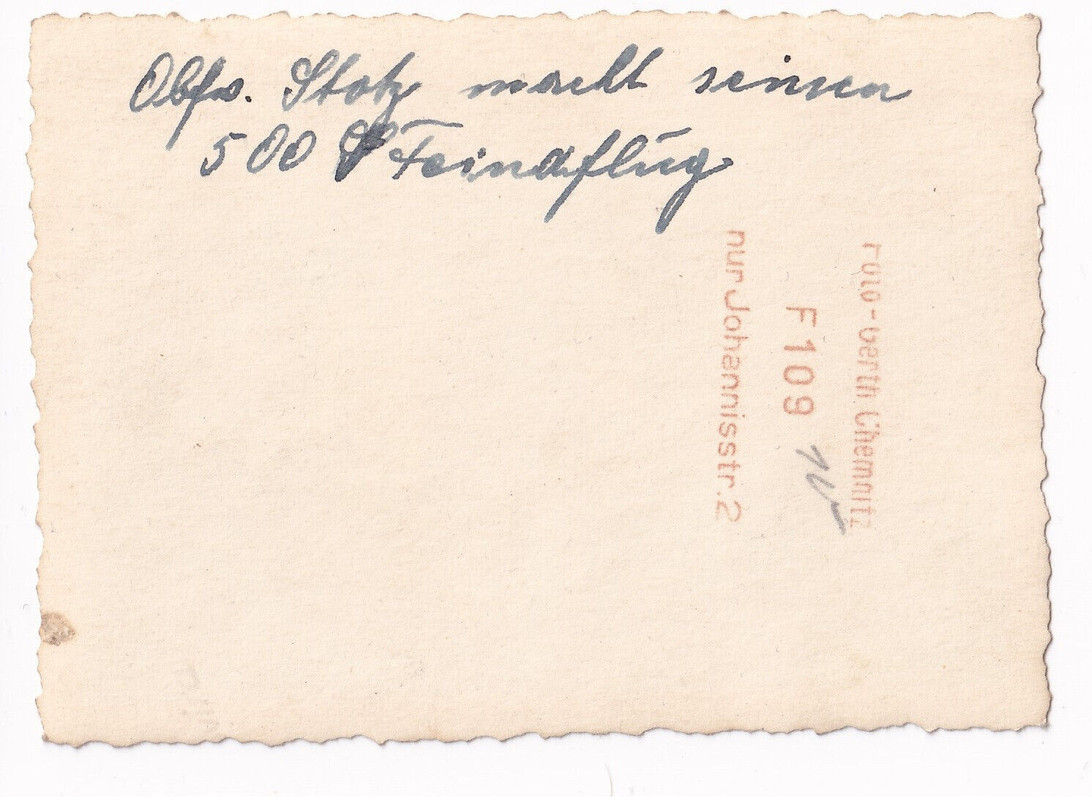 Obfw. Stotz macht seinen
500 Feindflug
Foto-Gerth, Chemnitz
F109
nur Johannisstr. 2